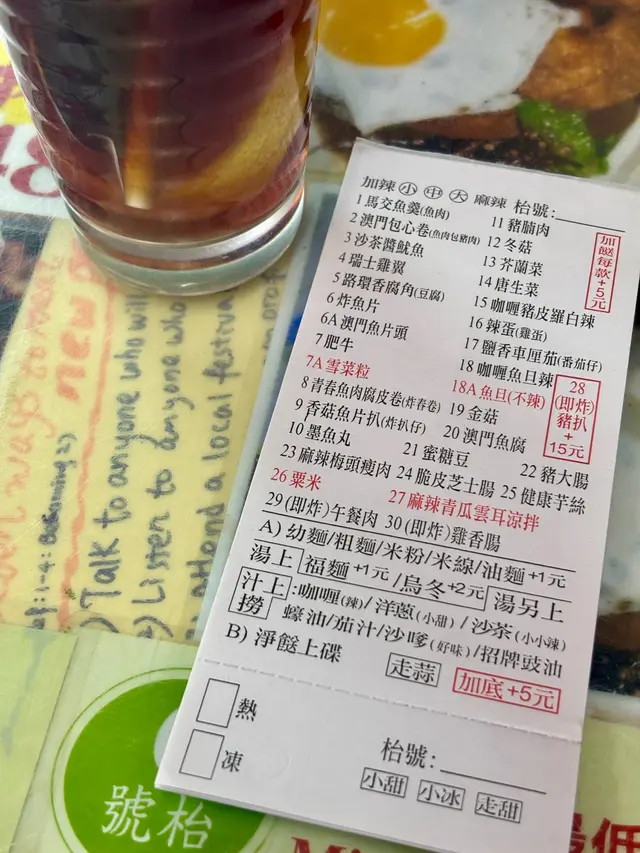 加辣 小 中 大 麻辣 枱號:
1 馬交魚羹(魚肉)
2 澳門包心卷(魚肉包豬肉)
3 沙茶醬魷魚
4 瑞士雞翼
5 路環香腐角(豆腐)
6 炸魚片
6A 澳門魚片頭
7 肥牛
7A 雪菜粒
8 青春魚肉腐皮卷(炸春卷)
9 香菇魚片扒(炸扒仔)
10 墨魚丸
11 豬腩肉
12 冬菇
13 芥蘭菜
14 唐生菜
15 咖喱豬皮蘿白辣
16 辣蛋(雞蛋)
17 鹽香車厘茄(番茄仔)
18 咖喱魚旦辣
18A 魚旦(不辣)
19 金菇
20 澳門魚腐
21 蜜糖豆
22 豬大腸
加餸每款+5元
28
(即炸)
豬扒
+
15元
23 麻辣梅頭瘦肉 24 脆皮芝士腸 25 健康芋絲
26 粟米 27 麻辣青瓜雲耳涼拌
29 (即炸)午餐肉 30 (即炸)雞香腸
A) 幼麵/粗麵/米粉/米線/油麵+1元
湯上 福麵+1元/烏冬+2元 湯另上
汁上撈:咖喱(辣)/洋蔥(小甜)/沙茶(小小辣)
蠔油/茄汁/沙嗲(好味)/招牌豉油
B) 淨餸上碟 走蒜 加底+5元
熱
凍
枱號:
小甜 小冰 走甜
new
Talk to anyone who will
Listen to anyone who
attend a local festival
枱號